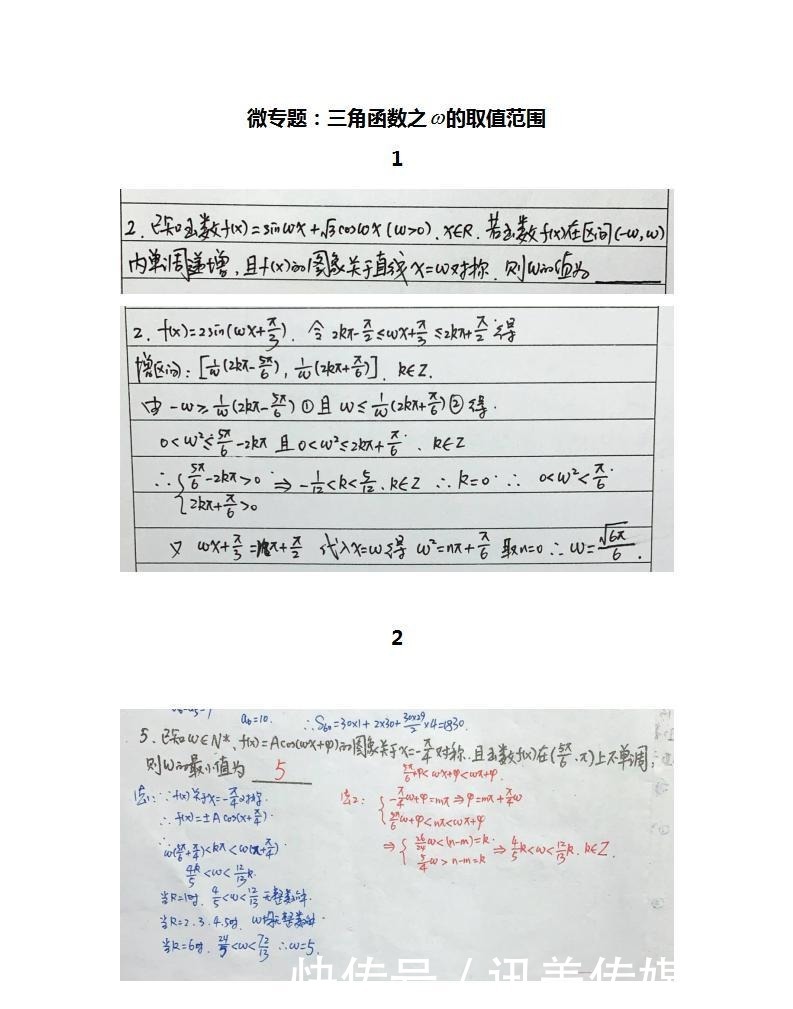 微专题：三角函数之ω的取值范围
1
2. 已知函数f(x)=sinωx+√3cosωx(ω>0), x∈R. 若函数f(x)在区间(-ω,ω)
内单周递增, 且f(x)的图象关于直线x=ω对称. 则ω的值为
2. f(x)=2sin(ωx+π/3). 令 2kπ-π/2≤ωx+π/3≤2kπ+π/2 得
增区间: [1/ω(2kπ-5π/6), 1/ω(2kπ+π/6)]. k∈Z.
由 -ω≥1/ω(2kπ-5π/6)① 且 ω≤1/ω(2kπ+π/6)② 得.
0<ω²≤5π/6-2kπ 且 0<ω²≤2kπ+π/6. k∈Z
∴ {5π/6-2kπ>0 ⇒ -1/12<k<5/12. k∈Z ∴ k=0 ∴ 0<ω²<π/6.
2kπ+π/6>0
又 ωx+π/3=nπ+π/2 代入x=ω得 ω²=nπ+π/6 取n=0 ∴ ω=√6π/6.
2
a₆=10. ∴S₆₀=30×1+2×30+30×29/2×4=1830.
5. 已知ω∈N*, f(x)=Acos(ωx+φ)的图象关于x=-π/4对称, 且函数f(x)在(5π/6, π)上不单调,
则ω的最小值为 5
法1: ∵f(x)关于x=-π/4对称.
∴ f(x)=±Acos(x+π/4).
∴ ω(5π/6+π/4)<kπ<ω(π+π/4)
4k/5<ω<12/13k.
当k=1时, 4/5<ω<12/13 无整数解.
当k=2.3.4.5时, ω均无整数解.
当k=6时, 24/5<ω<72/13 ∴ω=5.
法2:
5π/6ω+φ<ωx+φ<ωπ+φ.
{-π/4ω+φ=mπ ⇒ φ=mπ+π/4ω
5π/6ω+φ<nπ<ωπ+φ
⇒ {26/24ω<(n-m)=k. ⇒ 4/5k<ω<12/13k. k∈Z.
5/4ω>n-m=k
快传号 / 讯美传媒